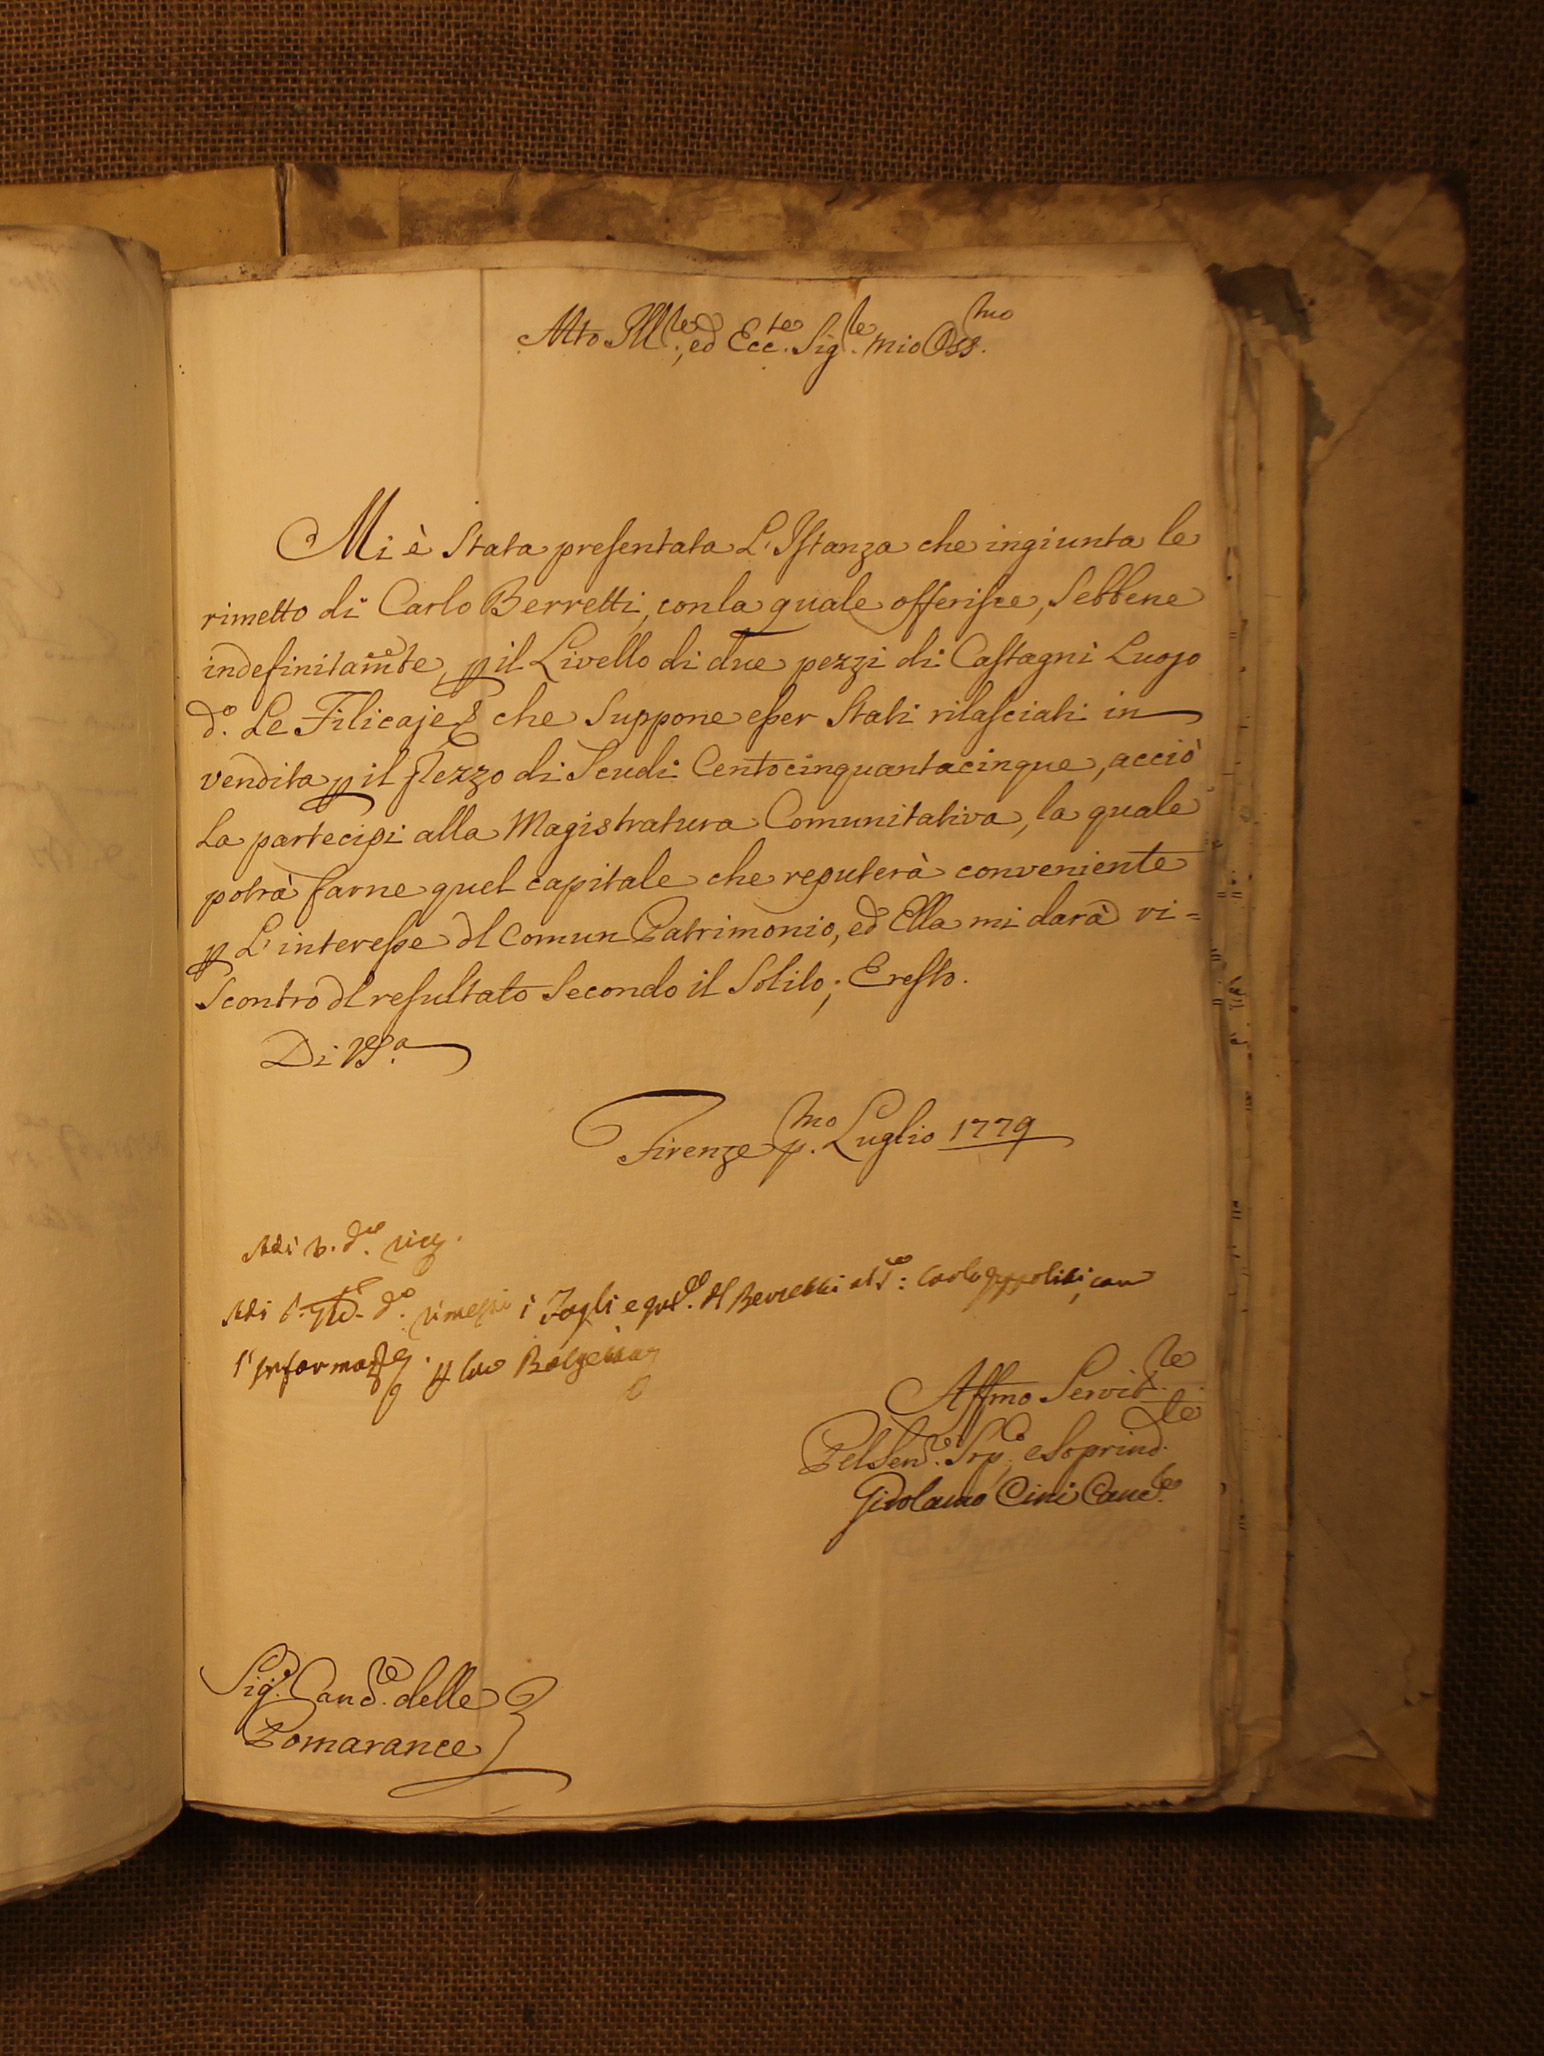 Mto Ill.re, ed Ecc.te Sig.re mio Oss.mo
Mi è Stata presentata L'Istanza che ingiunta le
rimetto di Carlo Berretti, con la quale offerisce, Sebbene
indefinitam.te p il Livello di due pezzi di Castagni Luogo
d.o Le Filicaje che Suppone esser Stati rilasciati in
vendita p il Prezzo di Scudi Centocinquantacinque, acciò
La partecipi alla Magistratura Comunitativa, la quale
potrà farne quel capitale che reputerà conveniente
p L'interesse dl Comun Patrimonio, ed Ella mi darà ri=
Scontro dl resultato Secondo il Solito; E resto.
Di VS.a
Firenze p.mo Luglio 1779
Adi d.o
Adi d.o rimessi i Fogli e dl Berretti al S.re Carlo Ippoliti, con
l'Informaz.e p la
Aff.mo Servit.re
Pel Sen.re e Soprind.te
Girolamo Cini Canc.re
Sig.re Canc.re delle
Pomarance